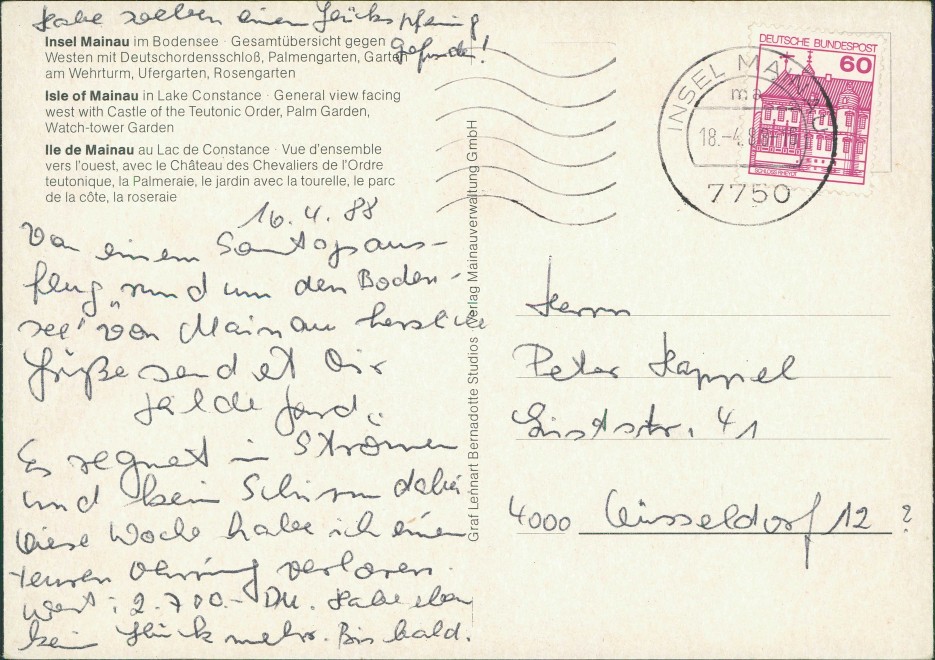 Habe soeben einen Glückspfennig
gefunden!
Insel Mainau im Bodensee · Gesamtübersicht gegen
Westen mit Deutschordensschloß, Palmengarten, Garten
am Wehrturm, Ufergarten, Rosengarten
Isle of Mainau in Lake Constance · General view facing
west with Castle of the Teutonic Order, Palm Garden,
Watch-tower Garden
Ile de Mainau au Lac de Constance · Vue d'ensemble
vers l'ouest, avec le Château des Chevaliers de l'Ordre
teutonique, la Palmeraie, le jardin avec la tourelle, le parc
de la côte, la roseraie
16.4.88
Von einem Samtagsaus-
flug "rund um den Boden-
see" von Mainau herzliche
Grüße sendet Dir
Es regnet in Strömen
und kein Schirm dabei
Diese Woche habe ich einen
teuren Ohrring verloren.
Wert: 2.700.- DM. Habe eben
kein Glück mehr. Bis bald.
Graf Lennart Bernadotte Studios · Verlag Mainauverwaltung GmbH
INSEL MAINAU
18.-4.88
7750
DEUTSCHE BUNDESPOST
60
SCHLOSS RHEYDT
Herrn
Peter Kappel
41
4000 Düsseldorf 12 ?